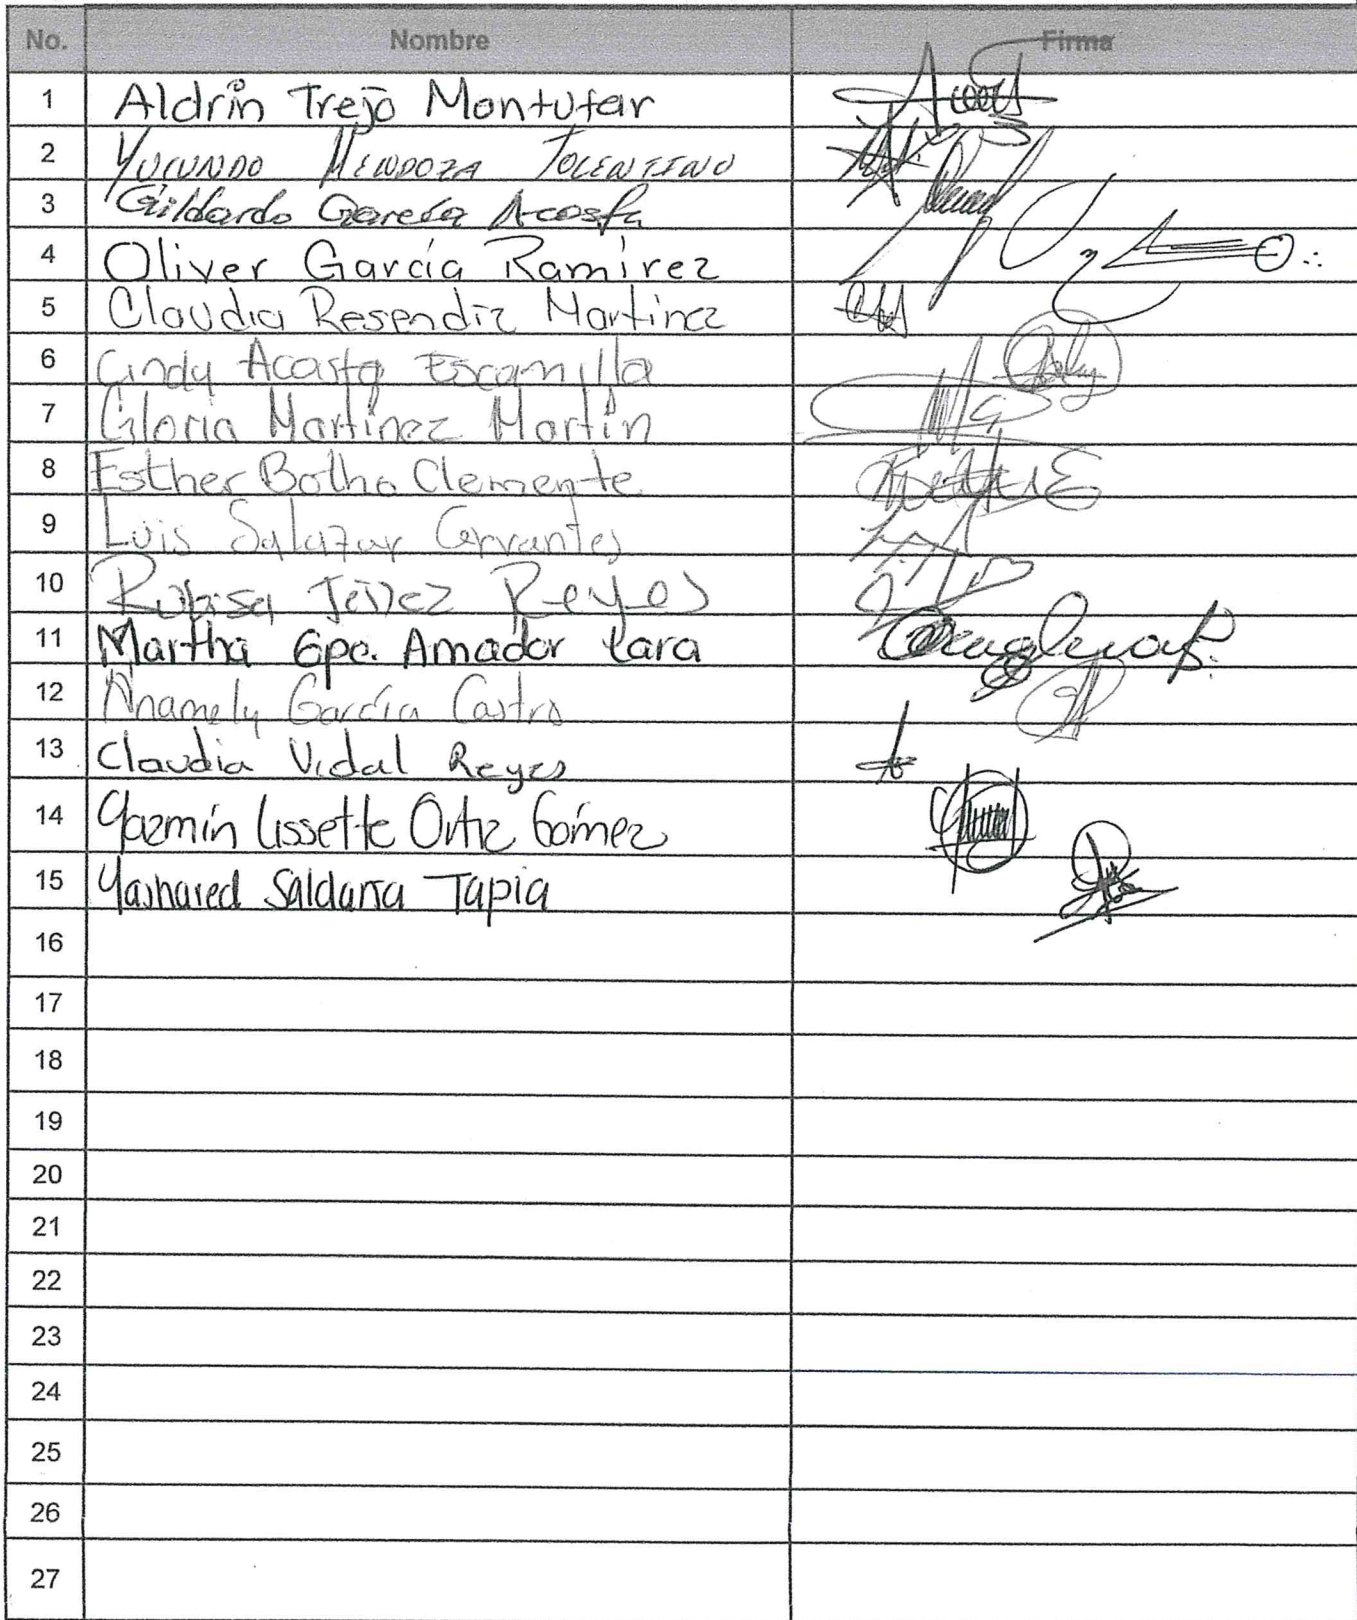 No. Nombre Firma
1 Aldrin Trejo Montufar
2 Yucundo MENDOZA TOLENTINO
3 Gildardo García Acosta
4 Oliver García Ramírez
5 Claudia Resendiz Martinez
6 Cindy Acosta Escamilla
7 Gloria Martínez Martín
8 Esther Botho Clemente
9 Luis Salazar Cervantes
10 Reyes
11 Martha Gpe. Amador Lara
12 Anamely García Castro
13 Claudia Vidal Reyes
14 Yazmín Lissette Ortiz Gómez
15 Saldaña Tapia
16
17
18
19
20
21
22
23
24
25
26
27